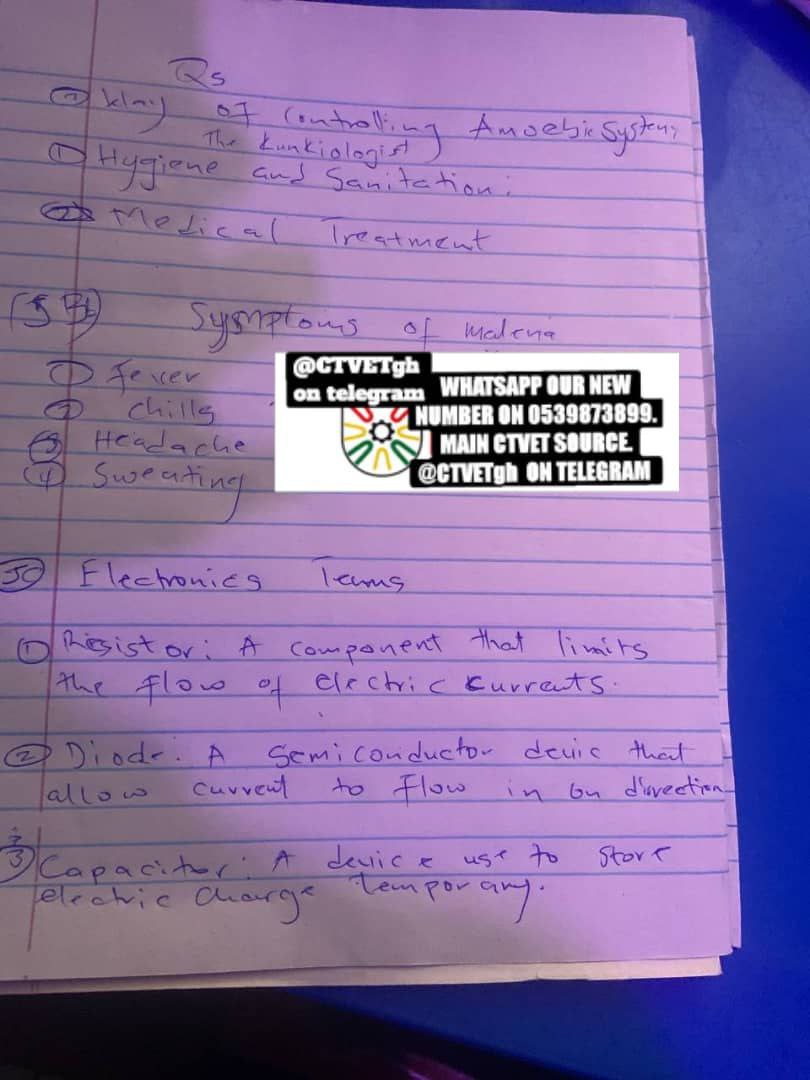 Qs
① Way of Controlling Amoebic System;
The
① Hygiene and Sanitation:
② Medical Treatment
Sysmptoms of maleria
① Fever
② Chills
③ Headache
④ Sweating
@CTVETgh
on telegram
WHATSAPP OUR NEW
NUMBER ON 0539873899.
MAIN CTVET SOURCE.
@CTVETgh ON TELEGRAM
5C Electronics Terms
① Resistor: A component that limits
the flow of electric currents.
② Diode: A Semiconductor devic that
allow current to flow in on direction
3 Capacitor: A device use to store
electric charge temporary.